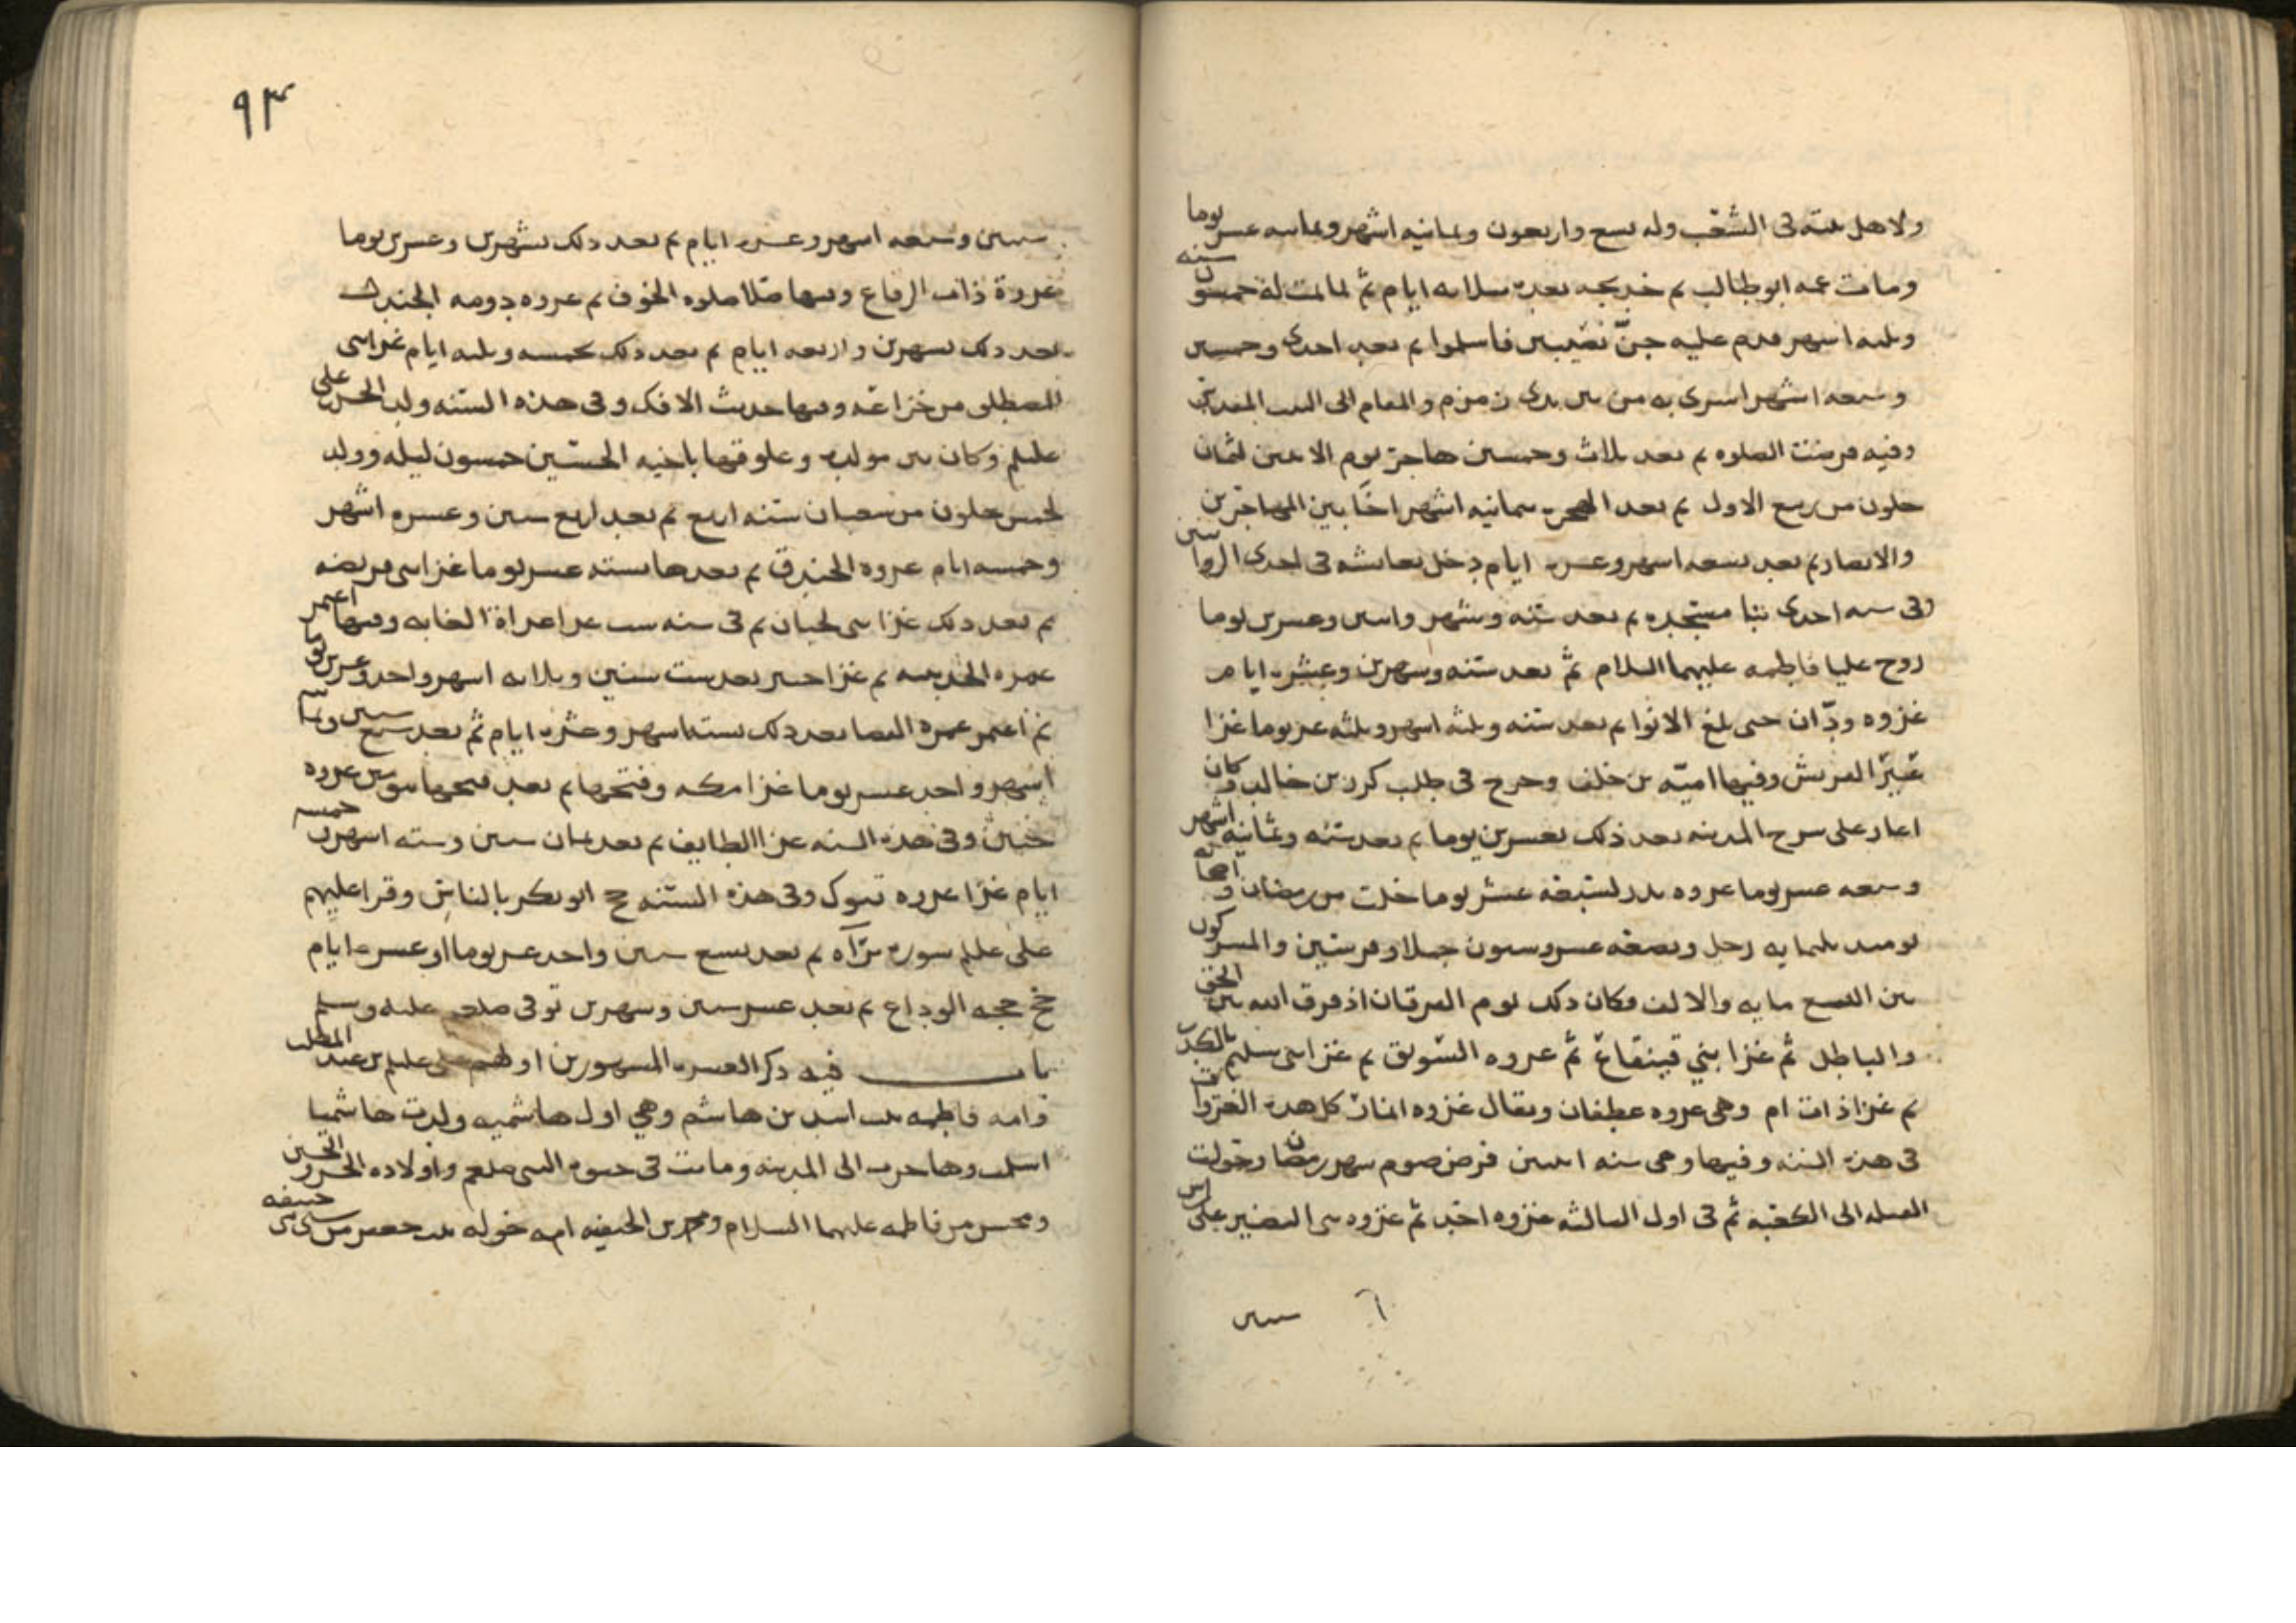 ولاهل بيته فى الشعب وله تسع واربعون وثمانيه اشهر وثمانيه عشر يوما
ومات عمه ابو طالب ثم خديجه بعده بثلاثه ايام ثم لما تمت له خمسون سنه
وثلثه اشهر قدم عليه جنّ نصيبين فاسلموا ثم بعد احدى وخمسين
وتسعه اشهر اسرى به من بين يدى زمزم والمقام الى البيت المقدس
وفيه فرضت الصلوه ثم بعد ثلاث وخمسين هاجر يوم الاثنين لثمان
خلون من ربيع الاول ثم بعد الهجره بثمانيه اشهر اخا بين المهاجرين
والانصار ثم بعد تسعه اشهر وعشره ايام دخل بعائشه فى احدى الروايتين
وفى سنه احدى بنا مسجده ثم بعد سنه وشهر واثنين وعشرين يوما
زوج عليا فاطمه عليهما السلام ثم بعد سنه وشهرين وعشره ايام
غزوه ودّان حتى بلغ الابوا ثم بعد سنه وثلثه اشهر وثلثه عشر يوما غزا
عيرا لقريش وفيها اميّه بن خلف وخرج فى طلب كرز بن خالد وكان
اغار على سرح المدينه بعد ذلك بعشرين يوما ثم بعد سنه وثمانيه اشهر
وسبعه عشر يوما غزوه بدر لسبعه عشر يوما خلت من رمضان و اصحابه
يومئذ ثلثمايه رجل وبضعه عشر وسبعون جملا وفرسين والمشركون
بين التسع مايه والالف وكان ذلك يوم الفرقان اذ فرق الله بين الحق
والباطل ثم غزا بني قينقاع ثم غزوه السّويق ثم غزا بنى سليم بالكدر
ثم غزا ذات ام وهى غزوه غطفان ويقال غزوه انمار كل هذه الغزوات
فى هذه السنه وفيها وهى سنه اثنين فرض صوم شهر رمضان وحولت
القبله الى الكعبه ثم فى اول الثالثه غزوه احد ثم غزوه بنى النضير على راس
سنين
٩٣
سنين وتسعه اشهر وعشره ايام ثم بعد ذلك بشهرين وعشرين يوما
غزوة ذات الرقاع وفيها صلا صلوه الخوف ثم غزوه دومه الجندل
بعد ذلك بشهرين واربعه ايام ثم بعد ذلك بخمسه وثلثه ايام غزا بنى
المصطلق من خزاعه وفيها حديث الافك وفى هذه السنه ولد الحسن بن على
عليلم وكان بين مولده وعلوقها باخيه الحسين خمسون ليله وولد
لخمس خلون من شعبان سنه اربع ثم بعد اربع سنين وعشره اشهر
وخمسه ايام غزوه الخندق ثم بعدها بسته عشر يوما غزا بنى قريضه
ثم بعد ذلك غزا بنى لحيان ثم فى سنه ست غزا غزاة الغابه وفيها اعتمر
عمره الحديبيه ثم غزا خيبر بعد ست سنين وثلاثه اشهر واحد وعشرين يوما
ثم اعتمر عمره القضا بعد ذلك بستة اشهر وعشره ايام ثم بعد سبع سنين وثمانيه
اشهر واحد عشر يوما غزا مكه وفتحها ثم بعد فتحها بيومين غزوه
حنين وفى هذه السنه غزا الطايف ثم بعد ثمان سنين وسته اشهر وخمسه
ايام غزا غزوه تبوك وفى هذه السنه حج ابو بكر بالناس وقرا عليهم
على عليلم سوره براه ثم بعد تسع سنين واحد عشر يوما او عشره ايام
حج حجه الوداع ثم بعد عشر سنين وشهرين توفى صلى عليه وسلم
باب فيه ذكر العشره المشهورين اولهم على عليلم بن عبد المطلب
وامه فاطمه بنت اسد بن هاشم وهي اول هاشميه ولدت هاشميا
اسلمت وهاجرت الى المدينه وماتت فى حيوه النبى صلعم واولاده الحسن والحسين
ومحسن من فاطمه عليهما السلام ومحمد بن الحنفيه امه خوله بنت جعفر من سبى بنى حنيفه